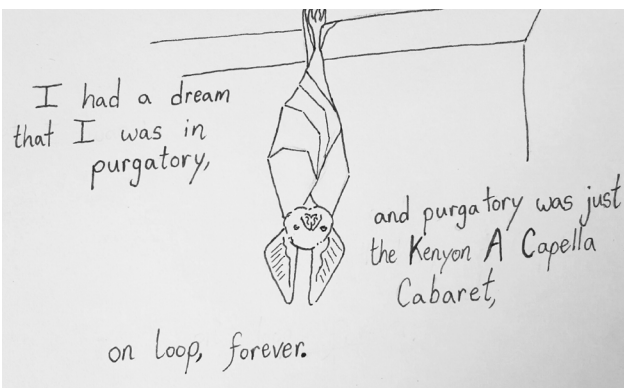 I had a dream
that I was in
purgatory,
and purgatory was just
the Kenyon A Capella
Cabaret,
on loop, forever.